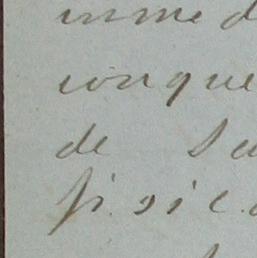 inmed
con que
de su
fisica